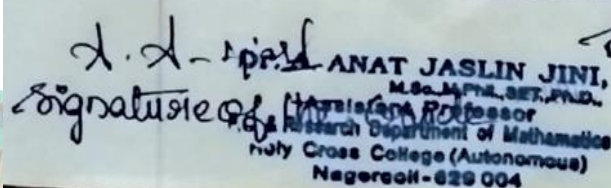 ANAT JASLIN JINI,
M.Sc., M.Phil., SET., Ph.D.,
Signature of the
Assistant Professor
Research Department of Mathematics
Holy Cross College (Autonomous)
Nagercoil-629 004